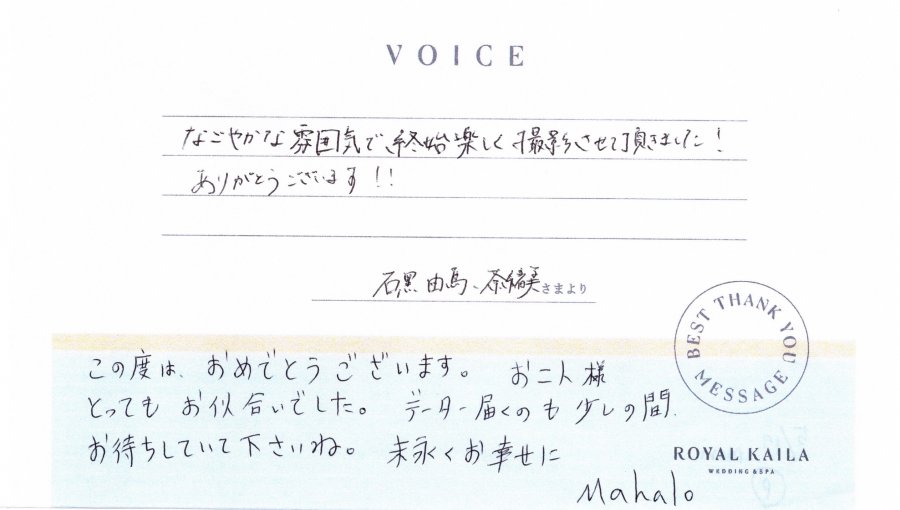 VOICE
なごやかな雰囲気で、終始楽しく撮影させて頂きました!
ありがとうございます!!
石黒 由馬、奈緒美さまより
BEST THANK YOU
MESSAGE
この度は、おめでとうございます。 お二人様
とっても お似合いでした。 データー届くのも 少しの間、
お待ちしていて下さいね。 末永くお幸せに
ROYAL KAILA
WEDDING & SPA
Mahalo